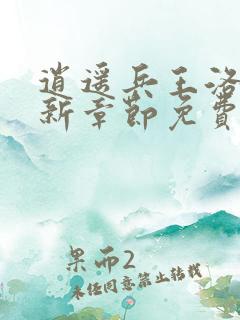 逍遥兵王洛
新章節免費
果而2
未经同意禁止转载